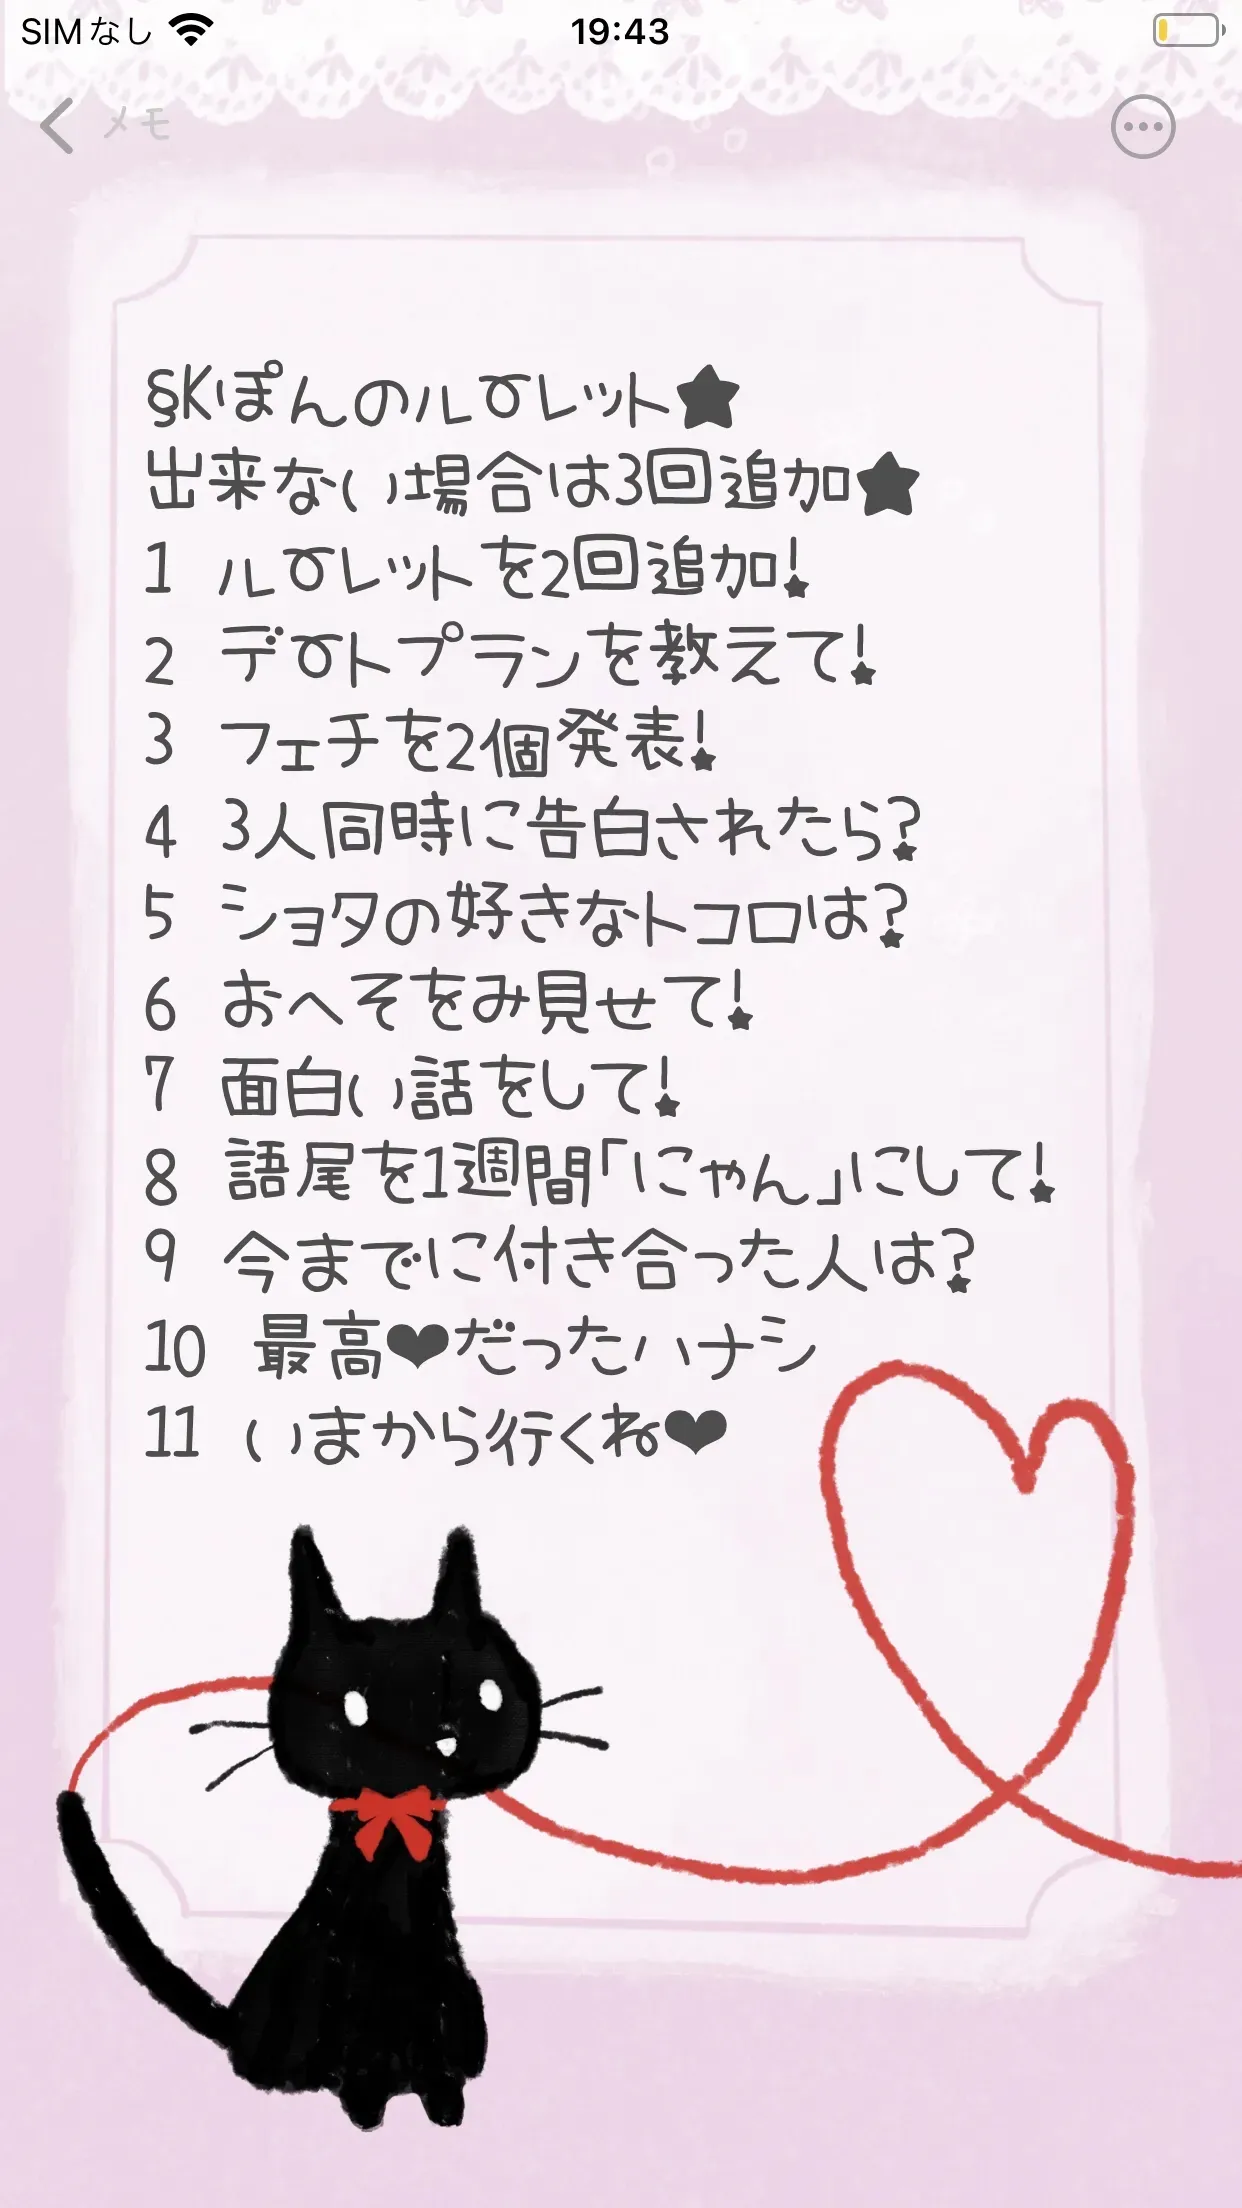 SIMなし
19:43
メモ
§Kぽんのルーレット★
出来ない場合は3回追加★
1 ルーレットを2回追加!
2 デートプランを教えて!
3 フェチを2個発表!
4 3人同時に告白されたら?
5 ショタの好きなトコロは?
6 おへそをみ見せて!
7 面白い話をして!
8 語尾を1週間「にゃん」にして!
9 今までに付き合った人は?
10 最高❤だったハナシ
11 いまから行くね❤